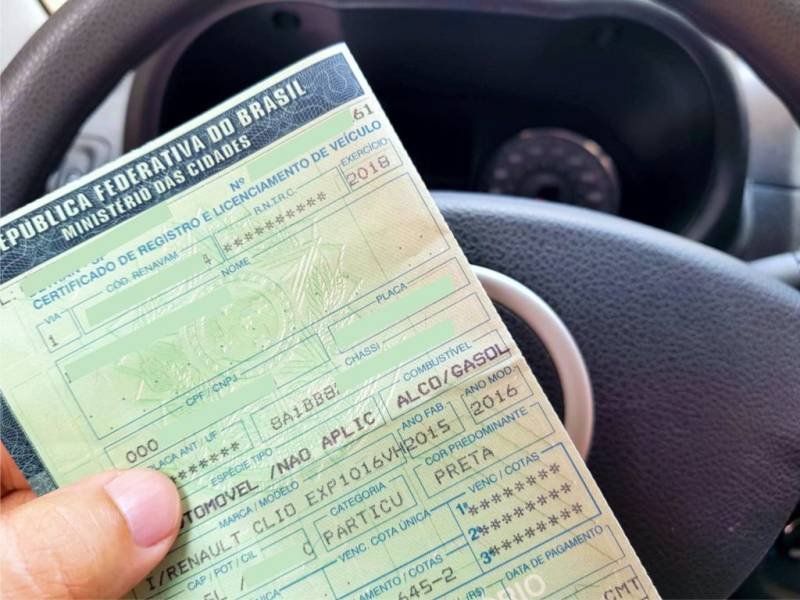 REPÚBLICA FEDERATIVA DO BRASIL
MINISTÉRIO DAS CIDADES
Nº 61
CERTIFICADO DE REGISTRO E LICENCIAMENTO DE VEÍCULO
VIA CÓD. RENAVAM R.N.T.R.C. EXERCÍCIO
1 4 ********** 2018
NOME
CPF / CNPJ PLACA
000
PLACA ANT / UF CHASSI
******* 8A1BBB
ESPÉCIE TIPO COMBUSTÍVEL
AUTOMOVEL /NAO APLIC ALCO/GASOL
MARCA / MODELO ANO FAB. ANO MOD.
I/RENAULT CLIO EXP1016VH 2015 2016
CAP / POT / CIL CATEGORIA COR PREDOMINANTE
5L / C PARTICU PRETA
VENC. COTA ÚNICA VENC / COTAS
1ª ********
2ª ********
3ª ********
PAGAMENTO / COTAS
645-2
(R$) DATA DE PAGAMENTO
CMT